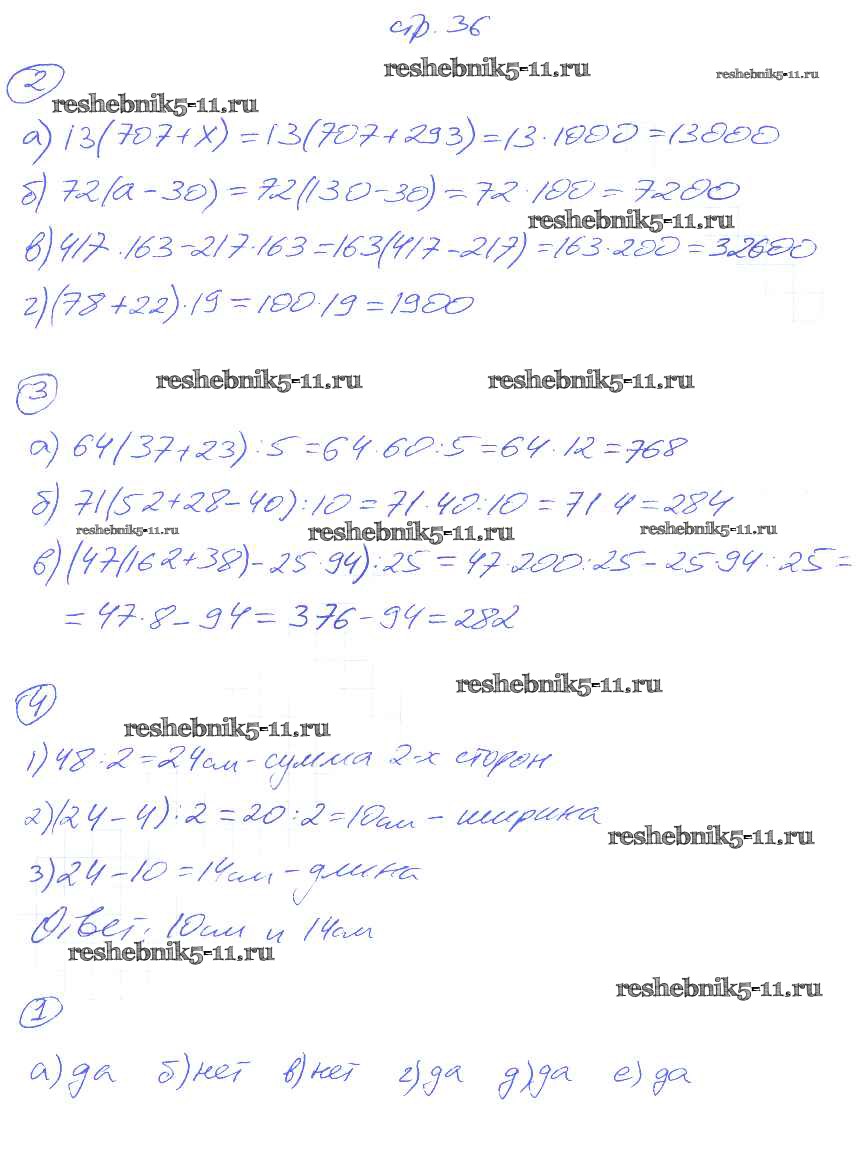 стр. 36
reshebnik5-11.ru
reshebnik5-11.ru
2
reshebnik5-11.ru
а) 13(707+х) = 13(707+293) = 13·1000 = 13000
б) 72(а-30) = 72(130-30) = 72·100 = 7200
reshebnik5-11.ru
в) 417·163-217·163 = 163(417-217) = 163·200 = 32600
г) (78+22)·19 = 100·19 = 1900
reshebnik5-11.ru reshebnik5-11.ru
3
а) 64(37+23):5 = 64·60:5 = 64·12 = 768
б) 71(52+28-40):10 = 71·40:10 = 71 4 = 284
reshebnik5-11.ru reshebnik5-11.ru reshebnik5-11.ru
в) (47(162+38)-25·94):25 = 47·200:25-25·94:25 =
= 47·8-94 = 376-94 = 282
reshebnik5-11.ru
4
reshebnik5-11.ru
1) 48:2=24см-сумма 2-х сторон
2) (24-4):2=20:2=10см-ширина
reshebnik5-11.ru
3) 24-10=14см-длина
Ответ: 10см и 14см
reshebnik5-11.ru
reshebnik5-11.ru
1
а) да б) нет в) нет г) да д) да е) да